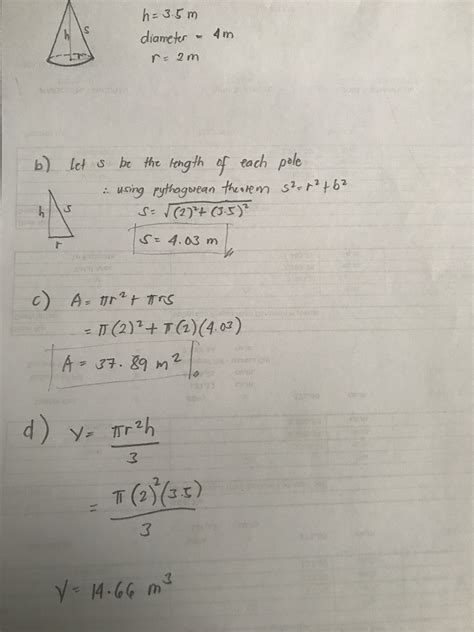 h = 3.5 m
h s
diameter = 4m
r
r = 2m
b) let s be the length of each pole
∴ using pythagorean theorem s² = r² + b²
h s
s = √(2)² + (3.5)²
r
s = 4.03 m
c) A = πr² + πrs
= π(2)² + π(2)(4.03)
A = 37.89 m²
d) V = πr²h
3
= π(2)²(3.5)
3
V = 14.66 m³